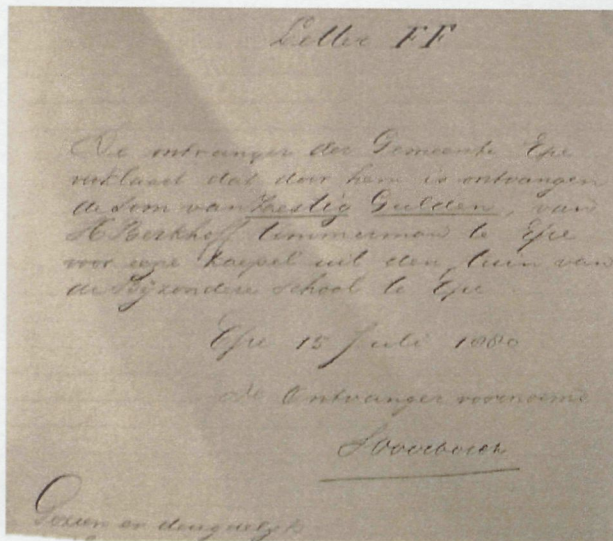 Letter FF
De ontvanger der Gemeente Epe
verklaart dat door hem is ontvangen
de som van Zestig Gulden, van
H Berkhoff timmerman te Epe
voor eene koepel uit den tuin van
de Bijzondere School te Epe
Epe 15 Juli 1880
De Ontvanger voornoemd
Gezien en deugdelijk